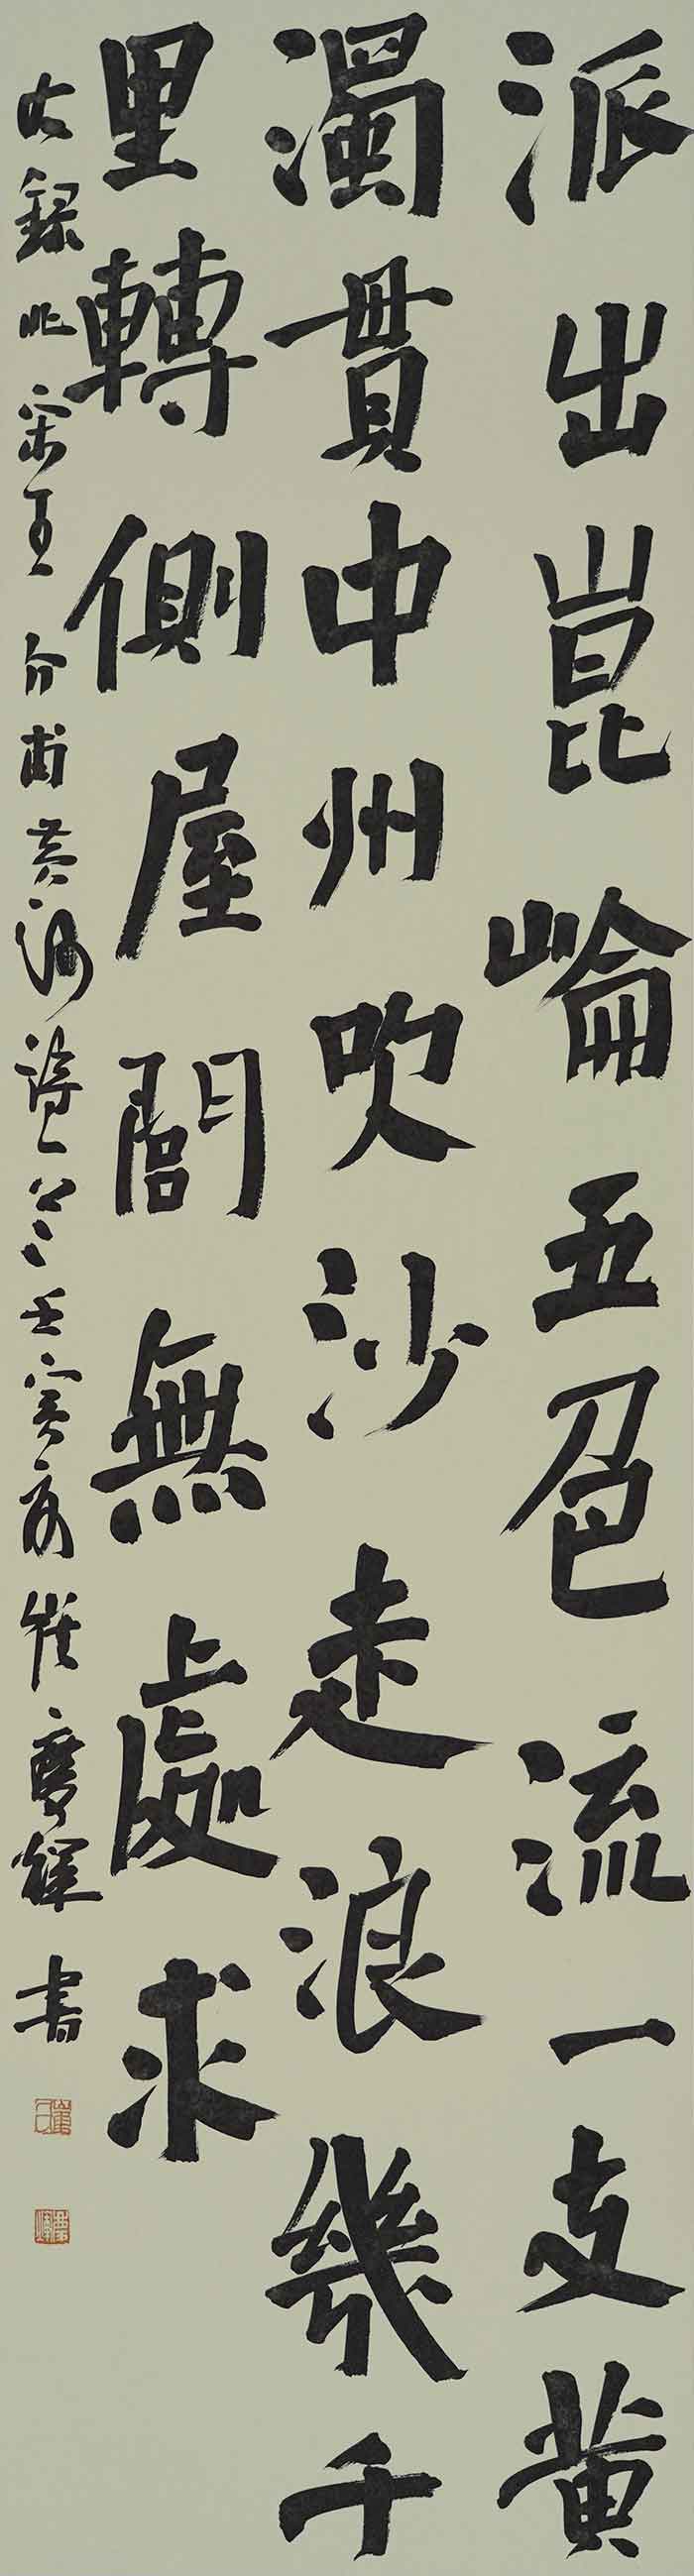 派出崑崙五色流一支黄
濁貫中州吹沙走浪幾千
里轉側屋閭無處求
大録北宋王介甫黄河詩一首壬寅夏崔慶輝書